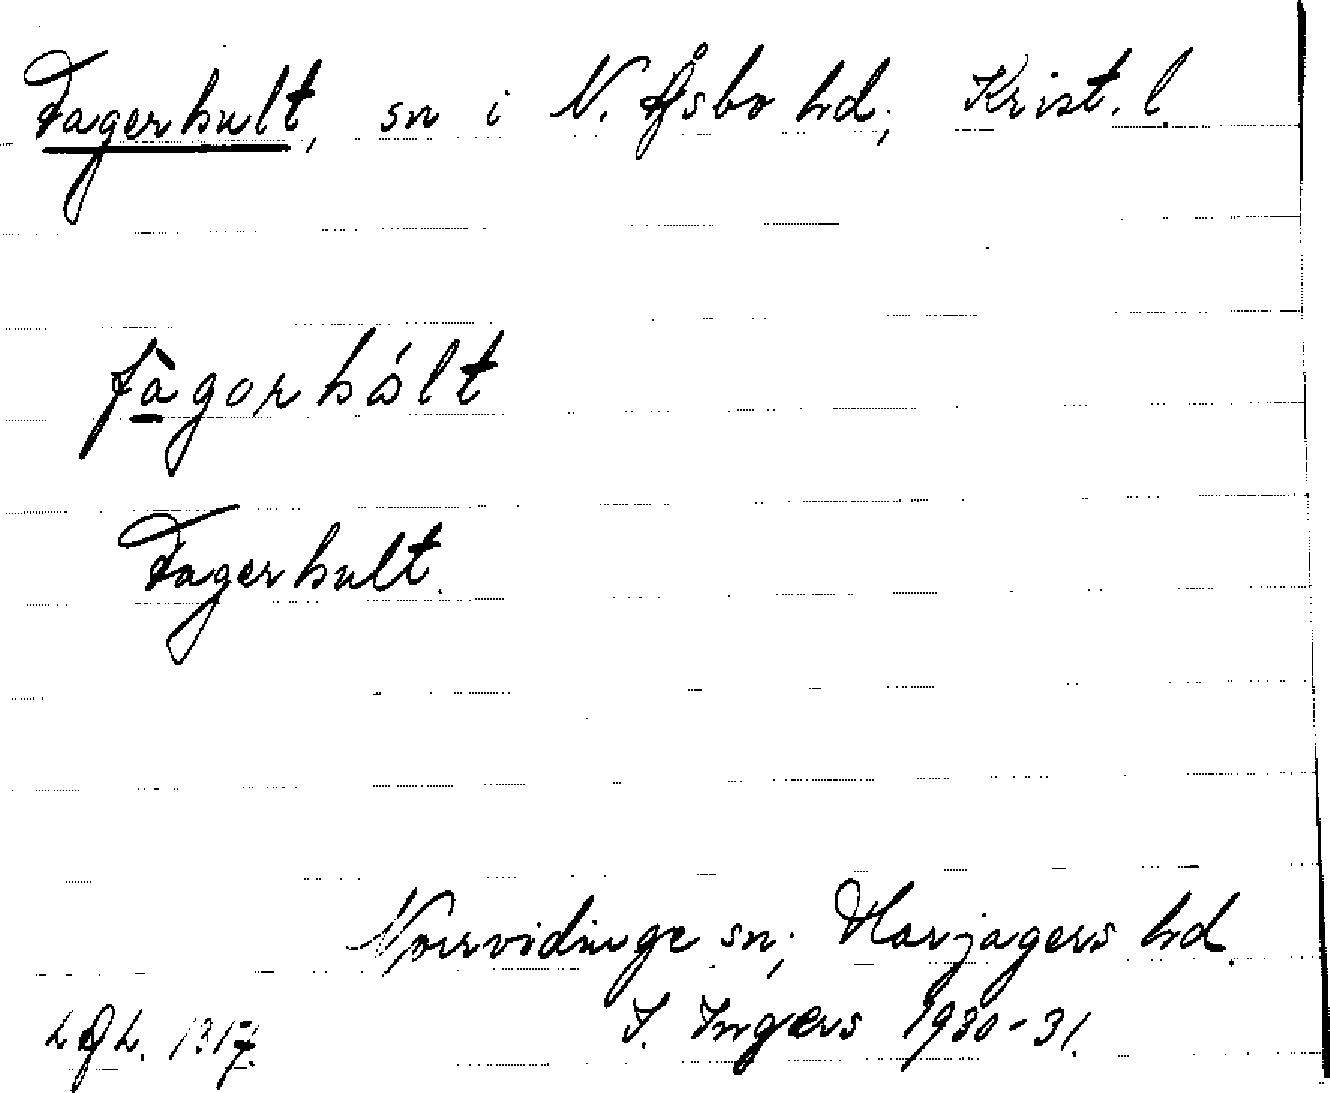 Fagerhult, sn i N. Åsbo hd; Krist. l.
fàgorhólt
Fagerhult.
Norrvidinge sn; Harjagers hd.
LAL. 1317. I. Ingers 1930-31.